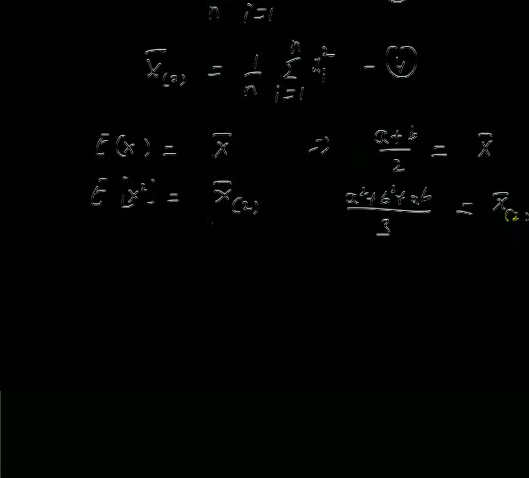 n i=1
X̄₍₂₎ = 1/n Σⁿᵢ₌₁ xᵢ² - (4)
E(x) = X̄ ⇒ (a+b)/2 = X̄
E[x²] = X̄₍₂₎ (a²+b²+ab)/3 = X̄₍₂₎